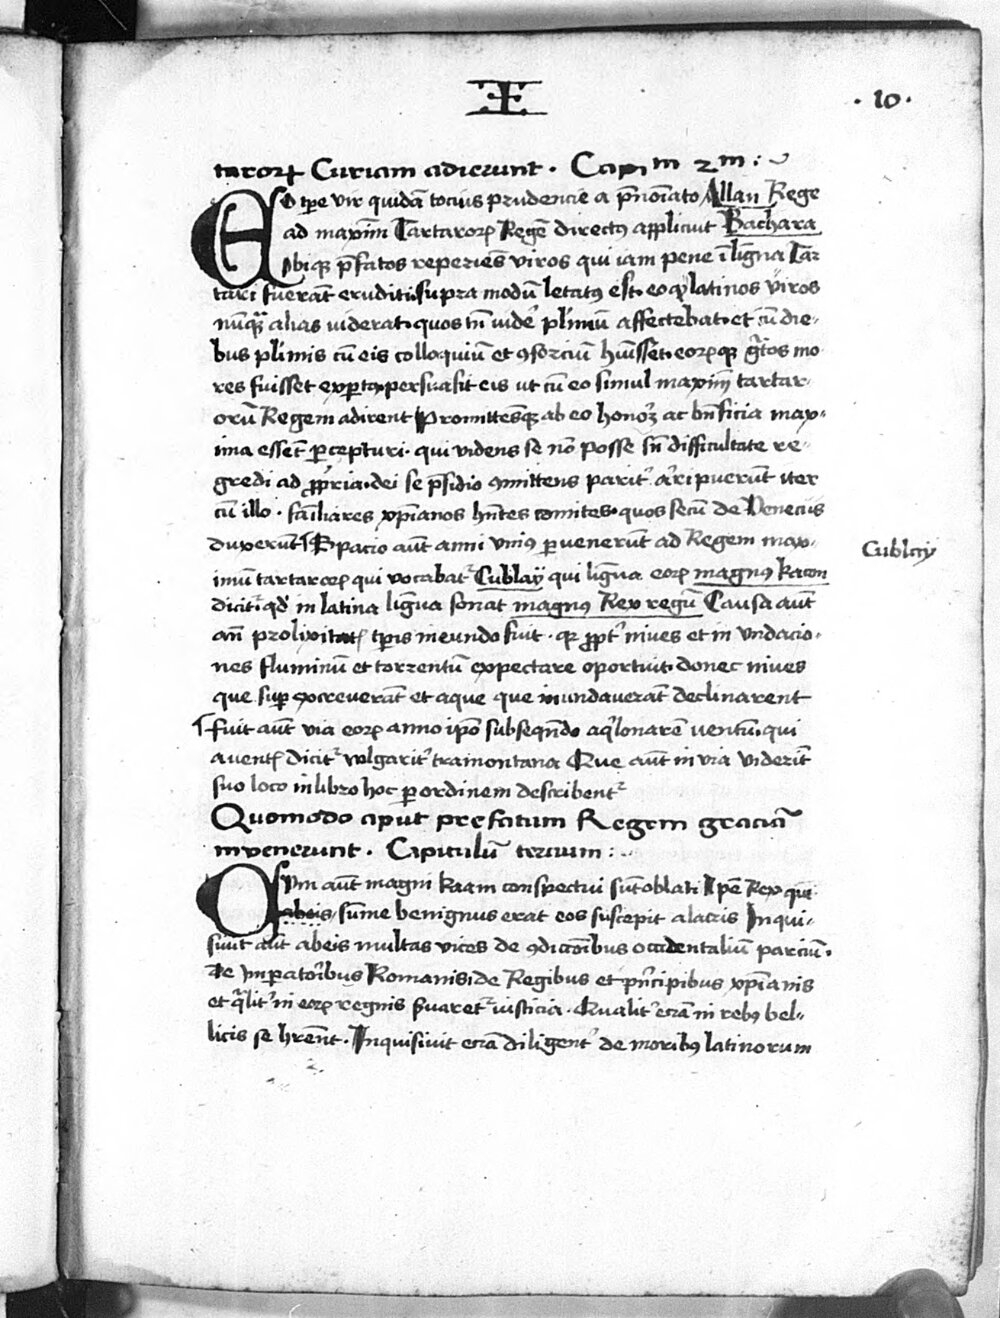 · 10 ·
tarorꝝ Curiam adierunt · Capᵐ 2ᵐ :
Eo tp̄e vir quidā tocius prudencie a p̄noīato Allau Rege
ad maxīm Tartarorꝝ Regē directꝰ applicuit Bachara
ibiqꝫ p̄fatos reperiēs viros qui iam pene ī ligna Tar
tari fuerāt eruditi supra modū letatꝰ est eo qͥ latinos viros
nūqͣ alias viderat quos tn̄ videˀ plīmū affectebat et cū die-
bus plīmis cū eis colloquiū et ꝯsorciū hūisset eorꝝqꝫ gͣtos mo
res fuisset exp̱tꝰ persuasit eis ut cū eo simul maxīm tartar-
orū Regem adirent Promittēsqꝫ ab eo honoꝝ ac bn̄ficia max-
ima essēt p̱cepturi · qui videns se nō posse sn̄ difficultate re-
gredi ad ꝓpria · dei se p̄sidio ꝯmittens paritˀ arripuerūt iter
cū illo · familiares xp̄ianos hn̄tes comites quos secū de Veneciis
duxerunt Spacio aūt anni vniꝰ p̱venerūt ad Regem max-
imū tartarorꝝ qui vocabatˀ Cublay qui ligua eorꝝ magnꝰ kaam
Cublay
dicitˀ qd̓ in latina ligua sonat magnꝰ Rex regū Causa aūt
an̄ prolixitatꝭ tp̱is in eundo fuit · qꝛ ꝓptˀ nives et in vndacio-
nes fluminū et torrentū expectare oportuit donec nives
que sup̱ excreverāt et aque que inundaverāt declinarent
fuit aūt via eorꝝ anno ip̄o subseqn̄do aqͥlonarē ventū qui
a ventꝭ dicitˀ vulgaritˀ tramontana Que aūt in via viderūt
suo loco in libro hoc p̱ ordinem describentˀ
Quomodo aput prefatum Regem graciā
invenerunt · Capitulū tercium :
Qum aūt magni kaam conspectui sūt oblati Ip̄e Rex qui
abeis sūme benignus erat eos suscepit alacris Inqui-
sivit aūt ab eis multas vices de ꝯdicōibus occidentaliū parciū
De Imperatoribus Romanis de Regibus et pͥncipibus xp̄ianis
et qͣlitˀ in eorꝝ regnis s̄varetˀ iusticia · Qualitˀ eciā in rebꝰ bel-
licis se hr̄ent · Inquisivit eciā diligentˀ de moribꝰ latinorum